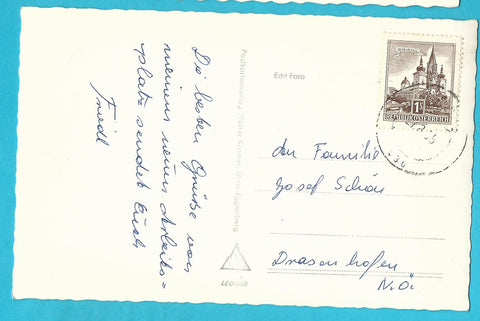 Die besten Grüße von
meinem neuen Arbeits=
platz sendet Euch
Friedl
Postkartenverlag Walter Kramer, Graz-Eggenberg
Echt Foto
LEOMAR
1S
REPUBLIK ÖSTERREICH
der Familie
Josef Schön
Drasenhofen
N.Ö.